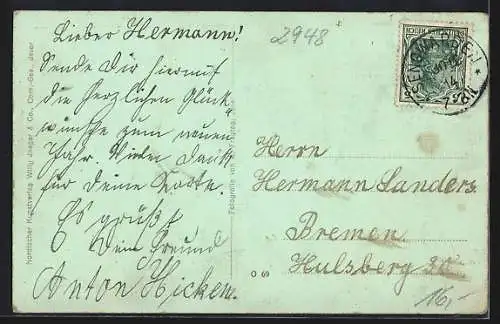 Lieber Hermann!
Sende Dir hiermit
die herzlichen Glück
wünsche zum neuen
Jahr. Vielen Dank
für Deine Karte.
Es grüßt
Dein Freund
Anton Hicken.
2948
SENGWARDEN
Herrn
Hermann Sanders.
Bremen
Hulsberg 30
0 69
16,-
Nordischer Kunstverlag Willy Jaeger & Co., Com.-Ges., Jever
Fotografie von